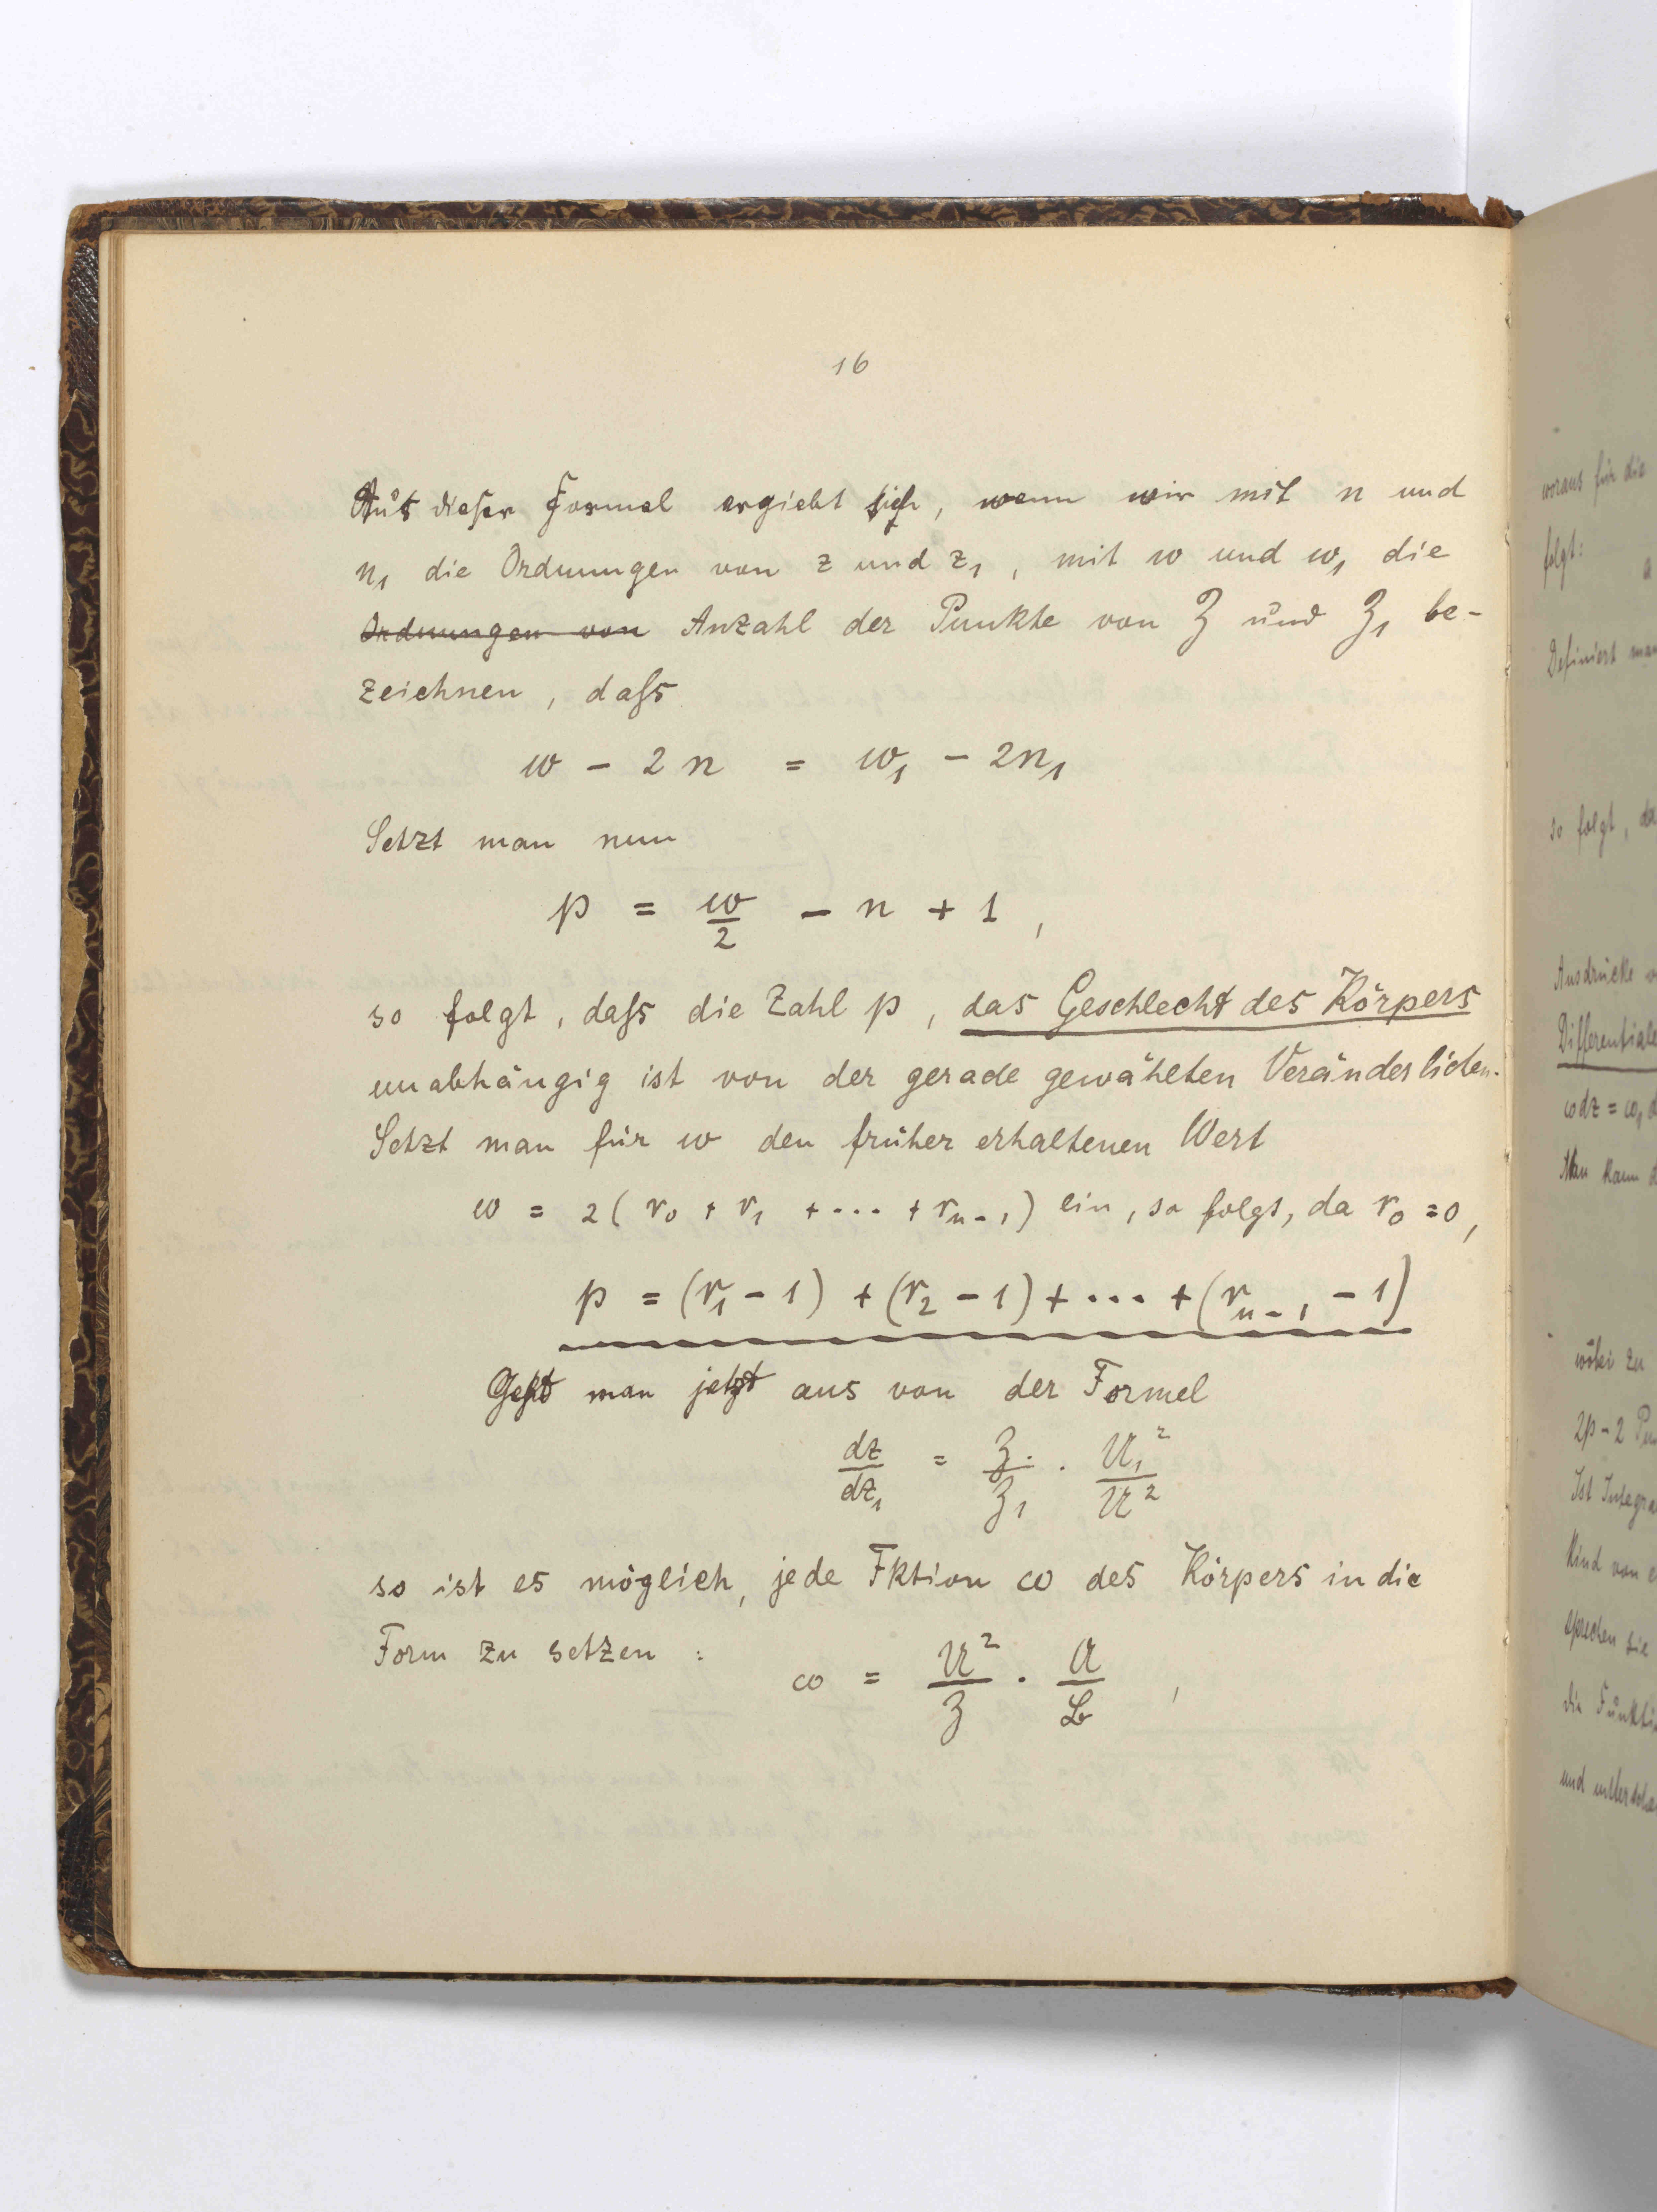 16
Aus dieser Formel ergiebt sich, wenn wir mit n und
n₁ die Ordnungen von z und z₁, mit w und w₁ die
Ordnungen von Anzahl der Punkte von ℨ und ℨ₁ be-
zeichnen, daſs
w - 2n = w₁ - 2n₁
Setzt man nun
p = w/2 - n + 1,
so folgt, daſs die Zahl p, das Geschlecht des Körpers
unabhängig ist von der gerade gewählten Veränderlichen.
Setzt man für w den früher erhaltenen Wert
w = 2(r₀ + r₁ + ... + rₙ₋₁) ein, so folgt, da r₀ = 0,
p = (r₁ - 1) + (r₂ - 1) + ... + (rₙ₋₁ - 1)
Geht man jetzt aus von der Formel
dz/dz₁ = ℨ/ℨ₁ · 𝔘₁²/𝔘²
so ist es möglich, jede Fktion ω des Körpers in die
Form zu setzen :
ω = 𝔘²/ℨ · 𝔄/𝔅 ,
woraus für die
folgt:
Definiert man
so folgt, da
Ausdrücke
Differentiale
ω dz = ω₁ d
Man kann d
wobei zu
2p - 2 Pun
Ist Integra
kind von e
sprechen sie
die Funkti
und